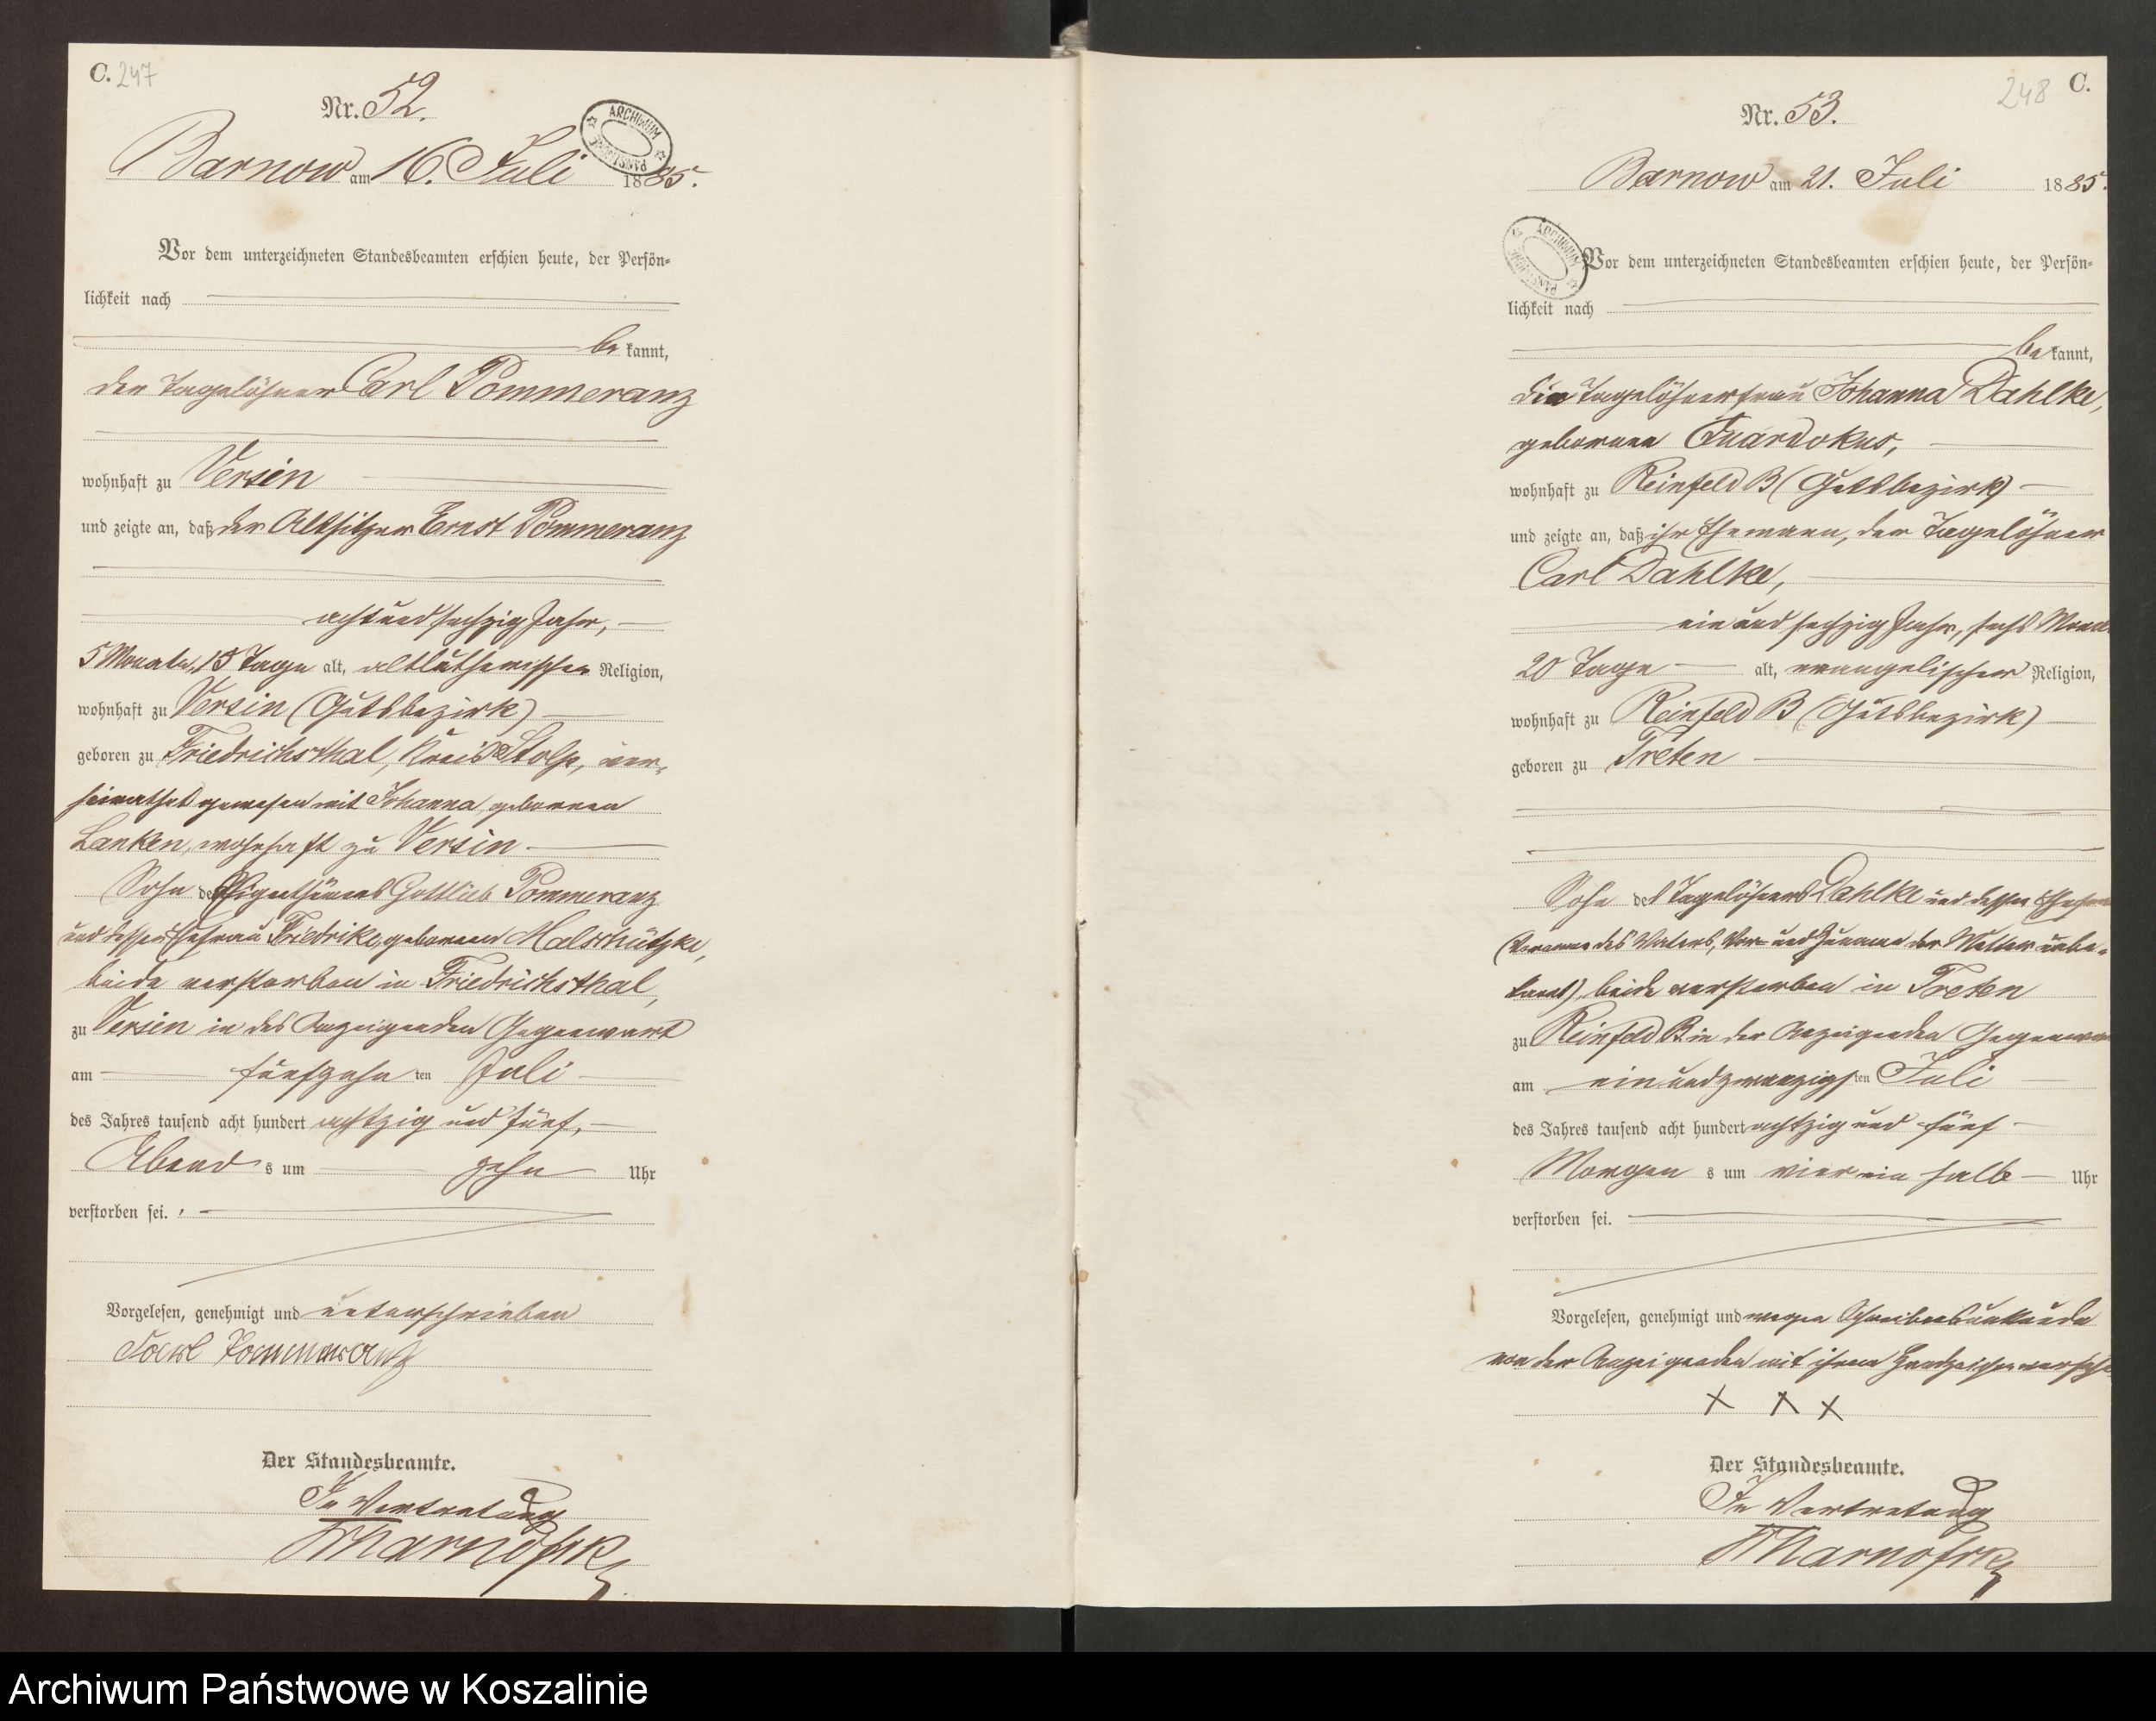 C. 247
Nr. 52.
ARCHIWUM PAŃSTWOWE
Barnow am 16. Juli 1885.
Vor dem unterzeichneten Standesbeamten erschien heute, der Persön-
lichkeit nach
be kannt,
der Tagelöhner Carl Pommeranz
wohnhaft zu Versin
und zeigte an, daß der Altsitzer Ernst Pommeranz
achtundsechzig Jahr,
5 Monate, 15 Tage alt, altlutherischer Religion,
wohnhaft zu Versin (Gutsbezirk)
geboren zu Friedrichsthal, Kreis Stolp, ver-
heirathet gewesen mit Johanna, geborenen
Lanken, wohnhaft zu Versin
Sohn des Eigenthümers Gottlieb Pommeranz
und dessen Ehefrau Friedrike, geborenen Malschützke,
beide verstorben in Friedrichsthal,
zu Versin in des Anzeigenden Gegenwart
am fünfzehn ten Juli
des Jahres tausend acht hundert achtzig und fünf,
Abend s um zehn Uhr
verstorben sei.
Vorgelesen, genehmigt und unterschrieben
Karl Pommeranz
Der Standesbeamte.
In Vertretung
C. 248
Nr. 53.
Barnow am 21. Juli 1885.
ARCHIWUM PAŃSTWOWE
Vor dem unterzeichneten Standesbeamten erschien heute, der Persön-
lichkeit nach
be kannt,
die Tagelöhnerfrau Johanna Dahlke,
geborene Quardokus,
wohnhaft zu Reinfeld B (Gutsbezirk)
und zeigte an, daß ihr Ehemann, der Tagelöhner
Carl Dahlke,
ein und sechzig Jahr, sechs Monat
20 Tage alt, evangelischer Religion,
wohnhaft zu Reinfeld B (Gutsbezirk)
geboren zu Treten
Sohn des Tagelöhners Dahlke und dessen Ehefrau
(Vorname des Vaters, Vor- und Zuname der Mutter unbe-
kannt), beide verstorben in Treten
zu Reinfeld B. in der Anzeigenden Gegenwart
am ein und zwanzigs ten Juli
des Jahres tausend acht hundert achtzig und fünf
Morgen s um vier ein halb Uhr
verstorben sei.
Vorgelesen, genehmigt und wegen Schreibensunkunde
von der Anzeigenden mit ihrem Handzeichen versehen
X X X
Der Standesbeamte.
In Vertretung
Archiwum Państwowe w Koszalinie